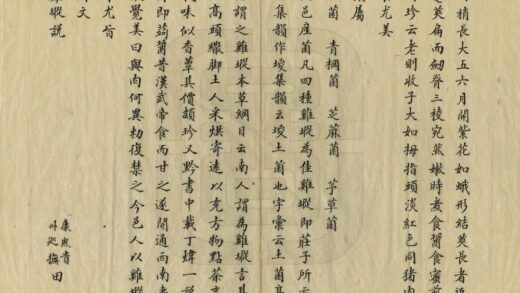 稍長大五六月開紫花如蛾形結莢長者近
莢扁而劍脊三棱宛然嫩時煮食醬食蜜煎
珍云老則收子大如拇指頭淡紅色同猪肉
尤美
屬
菌 青棡菌 芝蔴菌 茅草菌
邑產菌凡四種雞㙡為佳雞㙡即莊子所云
集韻作堫集韻云堫土菌也字彙云土菌高
謂之雞㙡本草綱目云南人謂為雞㙡言其
高頭繖脚土人采烘寄遠以充方物點茶烹
味似香蕈其價頗珍又黔書中載丁煒一說
即蒟菌昔漢武帝食而甘之遂開通西南
覺美曰與肉何異勅復禁之今邑人以雞㙡
尤旨
文
雞㙡說
康熙貴
州巡撫田